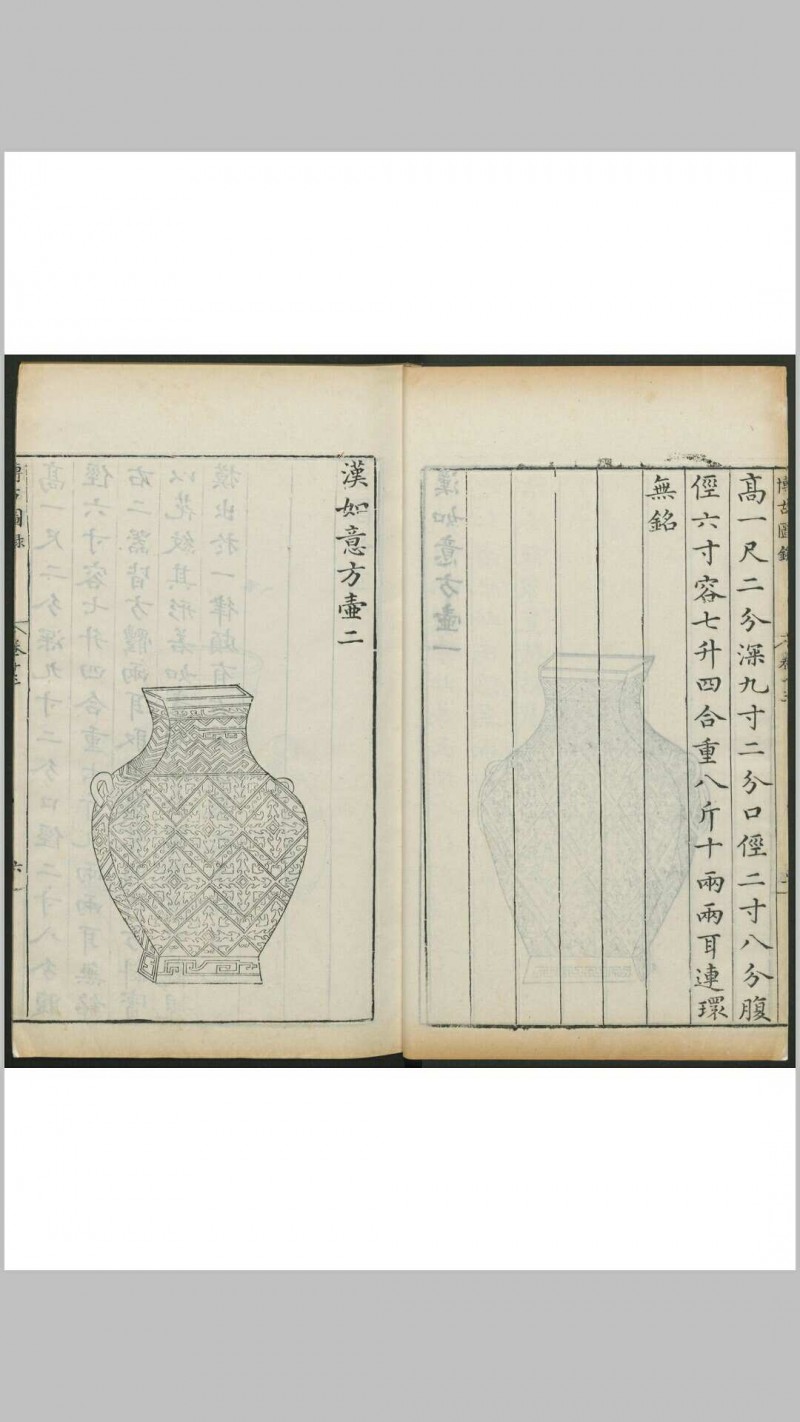 高一尺二分深九寸二分口徑二寸八分腹
徑六寸容七升四合重八斤十兩兩耳連環
無銘
漢如意方壺二